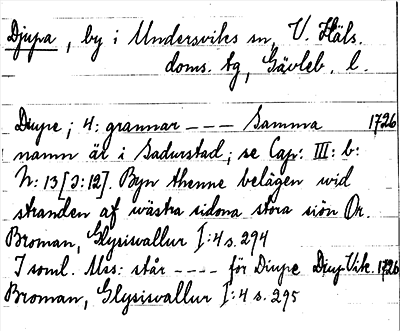 Djupa, by i Undersviks sn, V. Häls.
doms. tg, Gävleb. l.
Diupe; 4: grannar --- Samma 1726
namn är i Gadurstad; se Cap: III: b:
N: 13 [ɔ: 12]. Byn thenne belägen wid
stranden af wästra sidona stora siön Or.
Broman, Glysisvallur I:4 s. 294
I soml. Mss: står ---- för Diupe Diup Vik. 1726
Broman, Glysisvallur I:4 s. 295